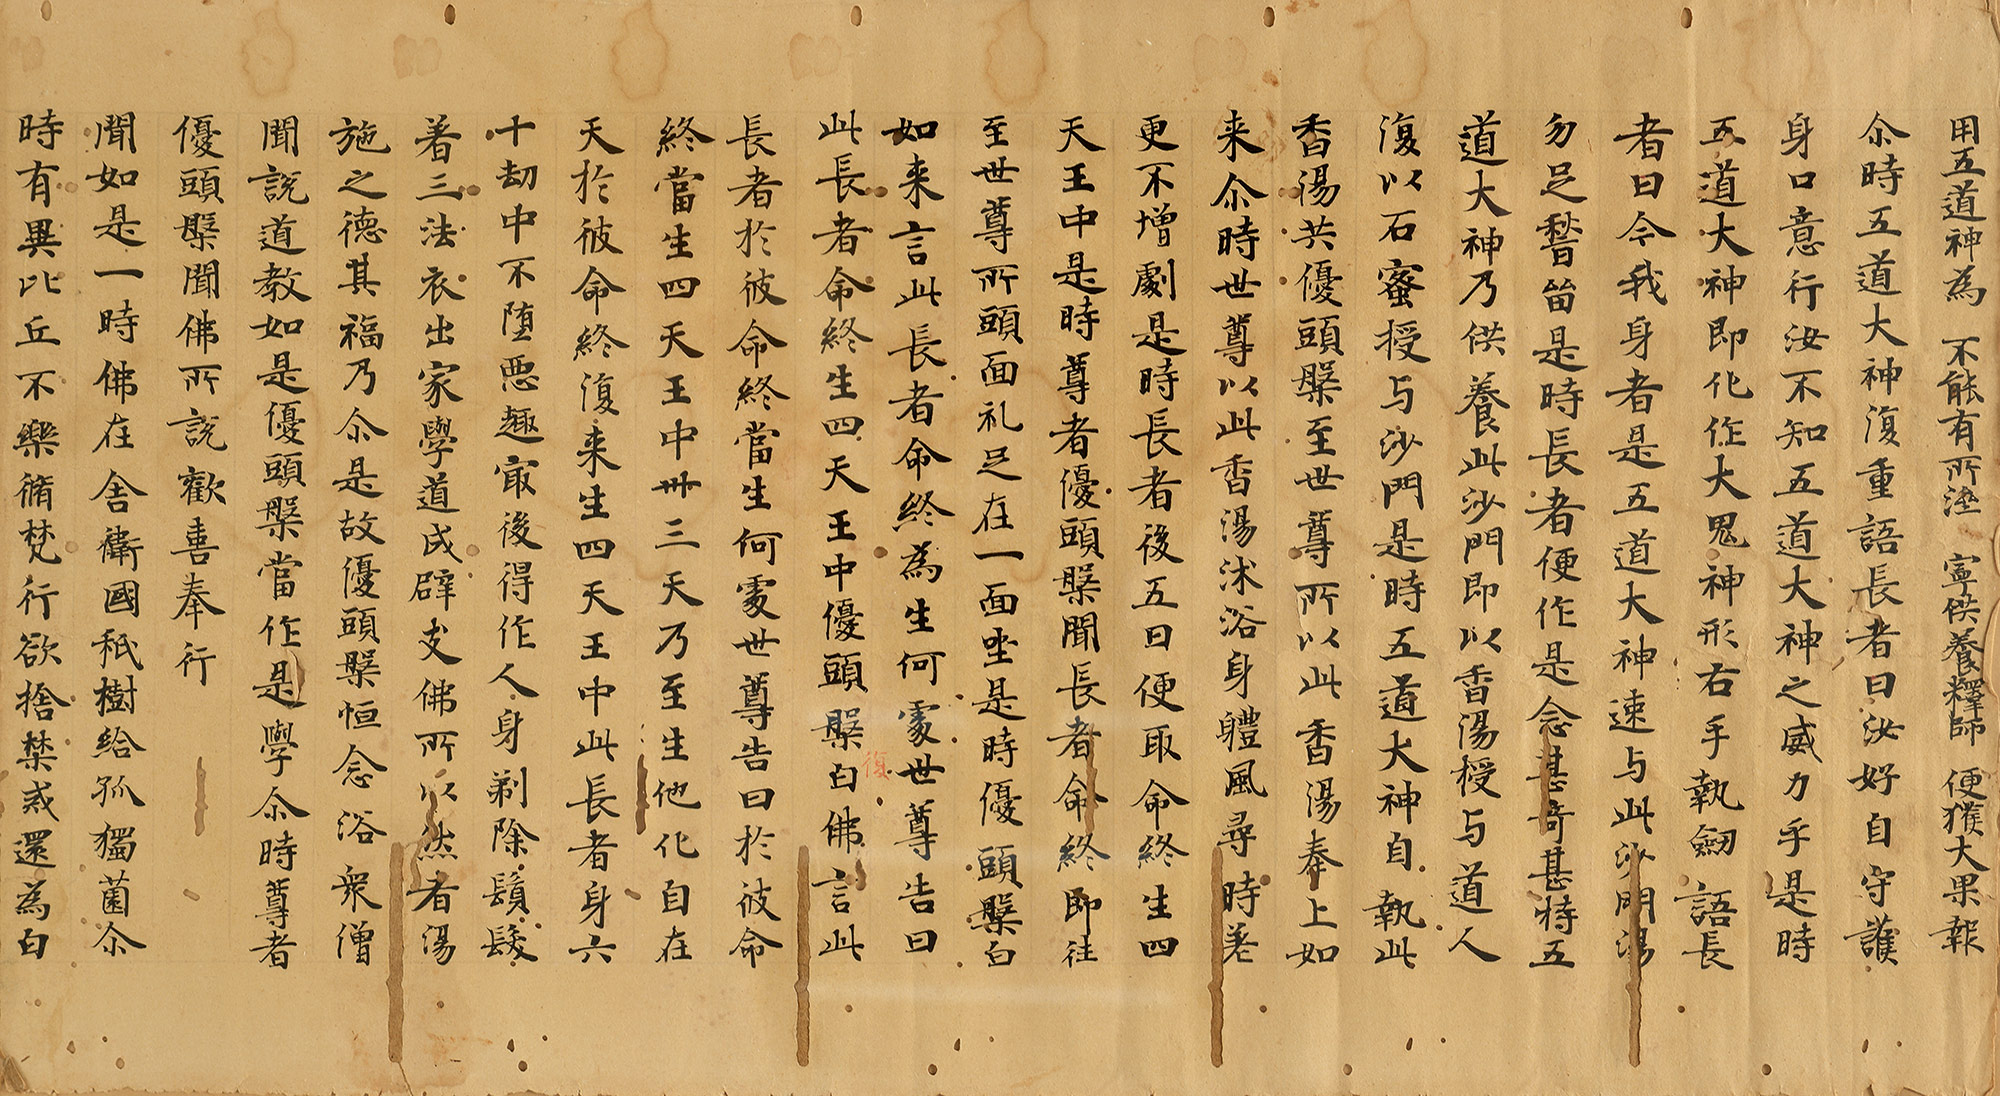 用五道神為不能有所堕寧供養釋師便獲大果報
尒時五道大神復重語長者曰汝好自守護
身口意行汝不知五道大神之威力乎是時
五道大神即化作大鬼神形右手執劒語長
者曰今我身者是五道大神速与此沙門湯
勿足稽留是時長者便作是念甚奇甚特五
道大神乃供養此沙門即以香湯授与道人
復以石蜜授与沙門是時五道大神自執此
香湯共優頭槃至世尊所以此香湯奉上如
来尒時世尊以此香湯沐浴身軆風尋時差
更不增劇是時長者後五日便取命終生四
天王中是時尊者優頭槃聞長者命終即往
至世尊所頭面礼足在一面坐是時優頭槃白
如来言此長者命終為生何處世尊告曰
此長者命終生四天王中優頭槃復白佛言此
長者於彼命終當生何處世尊告曰於彼命
終當生四天王中卅三天乃至生他化自在
天於彼命終復来生四天王中此長者身六
十劫中不堕惡趣冣後得作人身剃除鬚髮
著三法衣出家學道成辟支佛所以然者湯
施之德其福乃尒是故優頭槃恒念浴衆僧
聞說道教如是優頭槃當作是學尒時尊者
優頭槃聞佛所說歡喜奉行
聞如是一時佛在舍衛國秖樹給孤獨薗尒
時有異比丘不樂脩梵行欲捨禁戒還為白